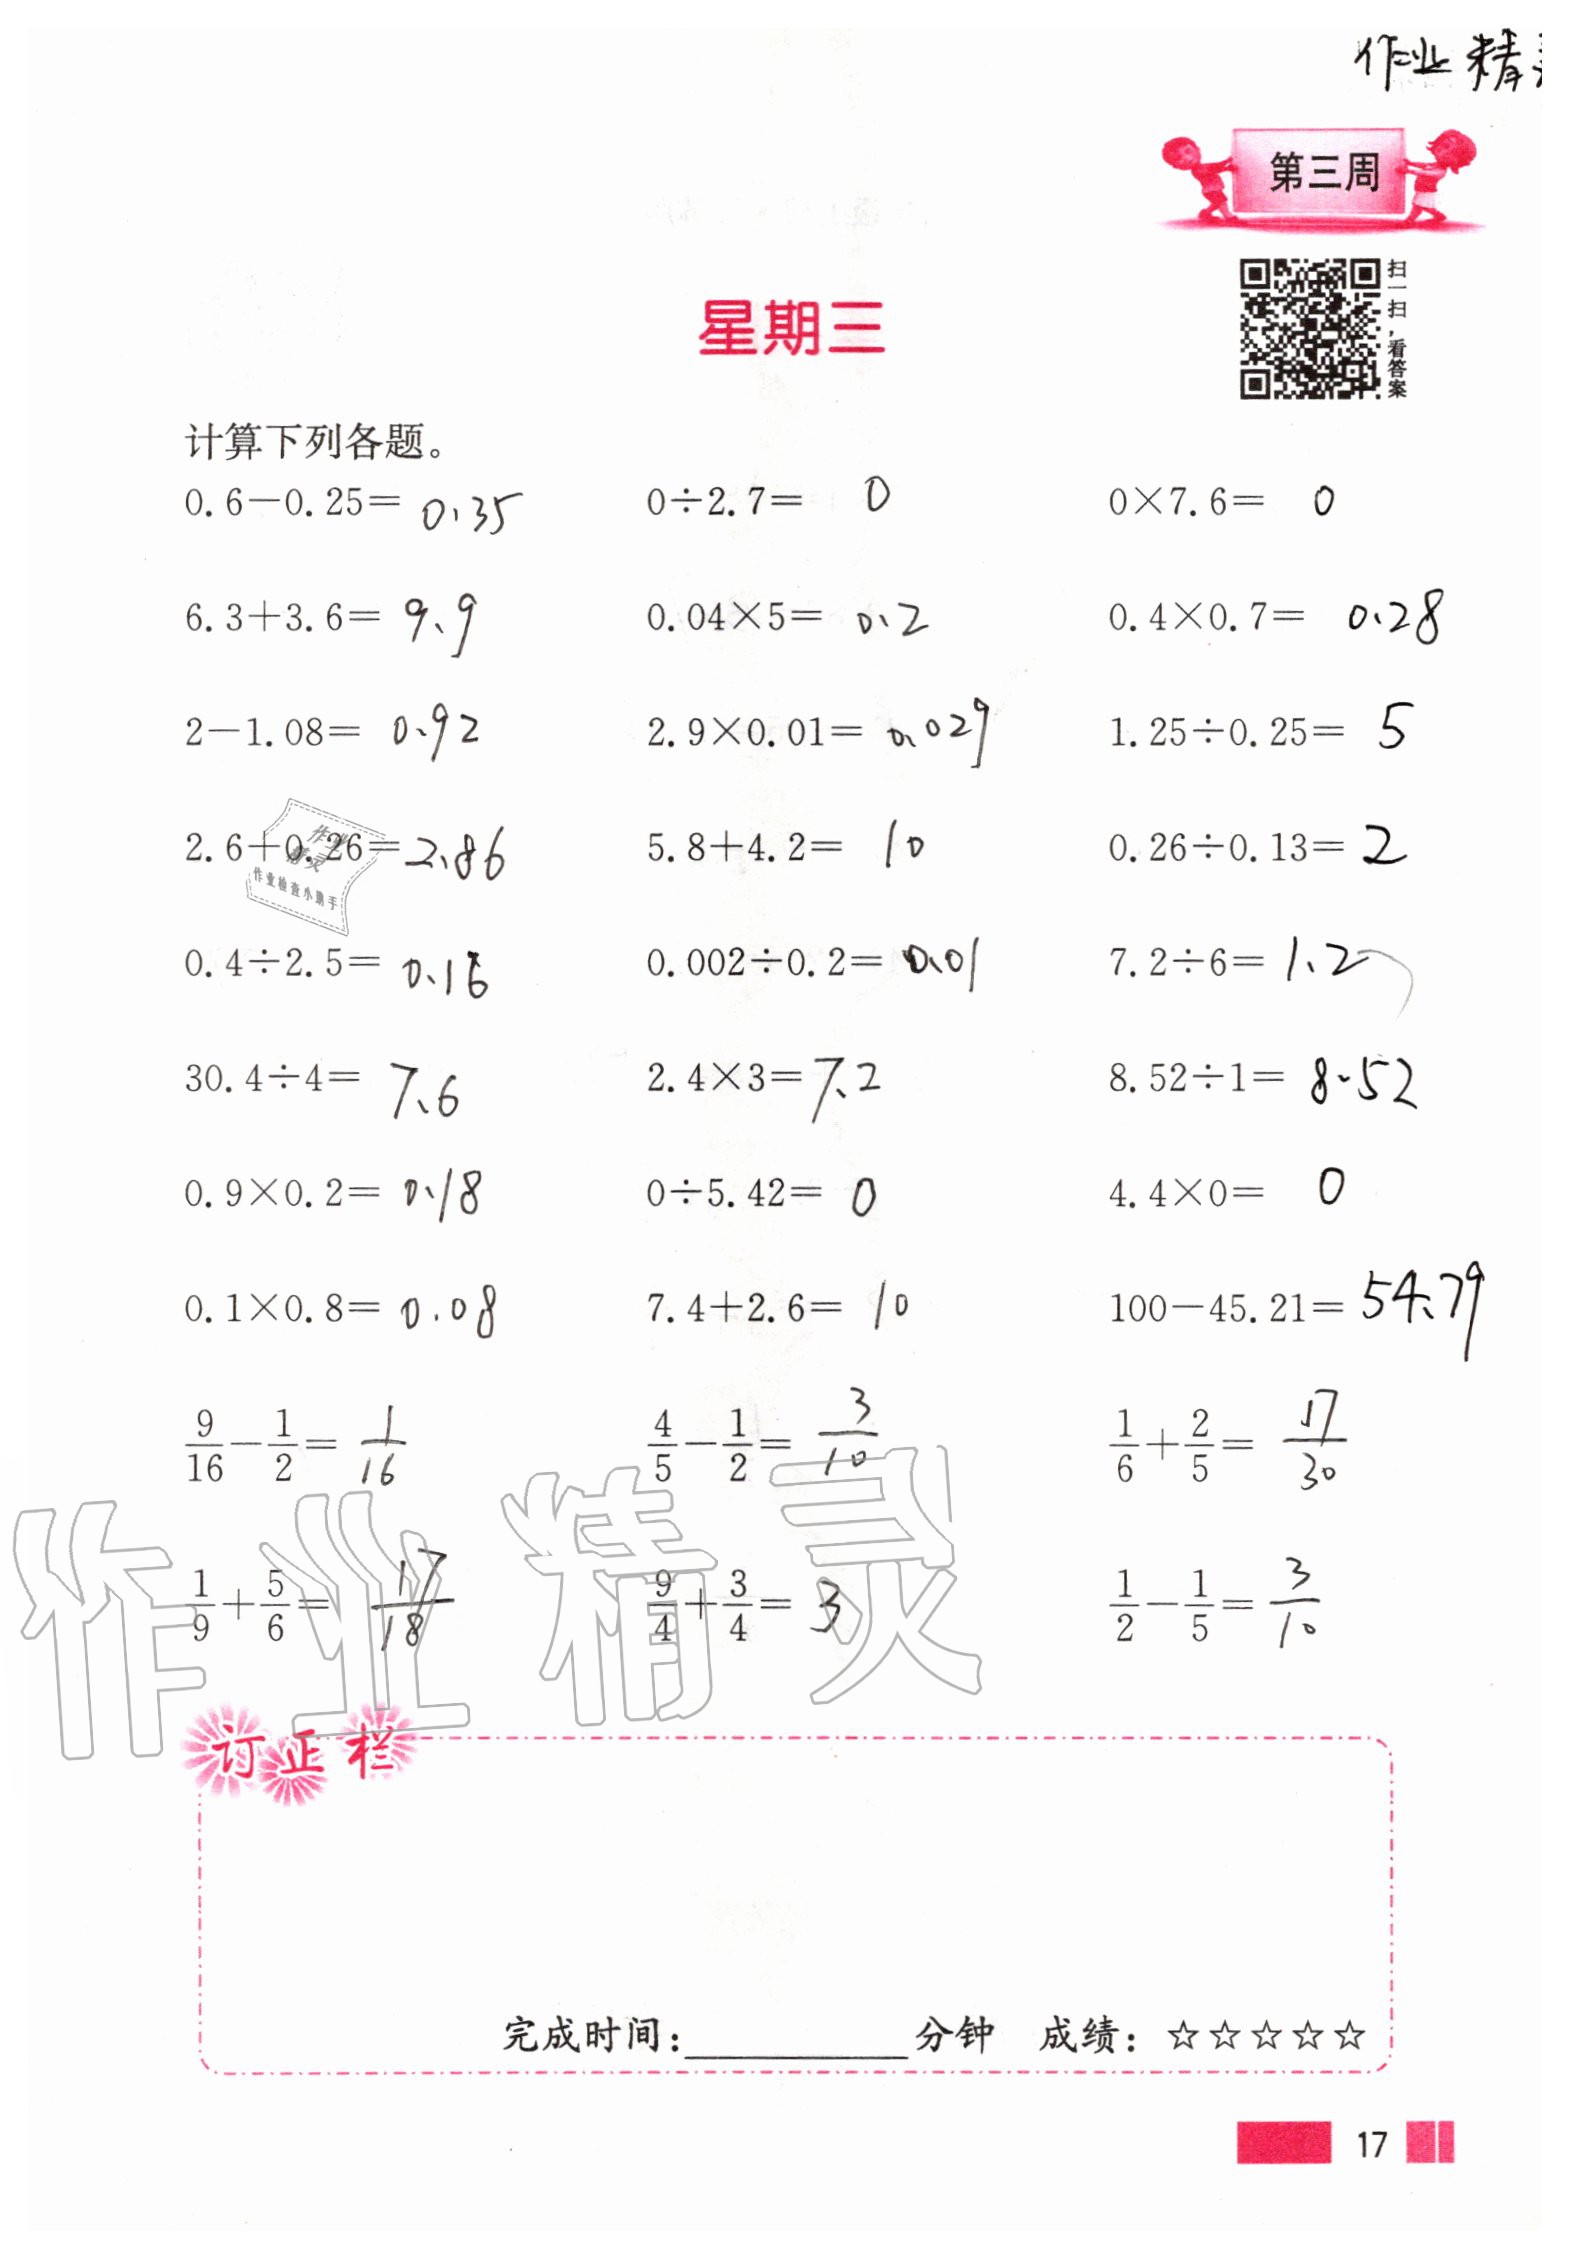 作业精
第三周
扫一扫,看答案
星期三
计算下列各题。
0.6－0.25＝ 0.35 0÷2.7＝ 0 0×7.6＝ 0
6.3＋3.6＝ 9.9 0.04×5＝ 0.2 0.4×0.7＝ 0.28
2－1.08＝ 0.92 2.9×0.01＝ 0.029 1.25÷0.25＝ 5
2.6＋0.26＝ 2.86 5.8＋4.2＝ 10 0.26÷0.13＝ 2
作业
精灵
作业检查小助手
0.4÷2.5＝ 0.16 0.002÷0.2＝ 0.01 7.2÷6＝ 1.2
30.4÷4＝ 7.6 2.4×3＝ 7.2 8.52÷1＝ 8.52
0.9×0.2＝ 0.18 0÷5.42＝ 0 4.4×0＝ 0
0.1×0.8＝ 0.08 7.4＋2.6＝ 10 100－45.21＝ 54.79
9/16－1/2＝ 1/16 4/5－1/2＝ 3/10 1/6＋2/5＝ 17/30
1/9＋5/6＝ 17/18 9/4＋3/4＝ 3 1/2－1/5＝ 3/10
作业精灵
订正栏
完成时间:＿＿＿＿＿分钟 成绩:☆☆☆☆☆
17